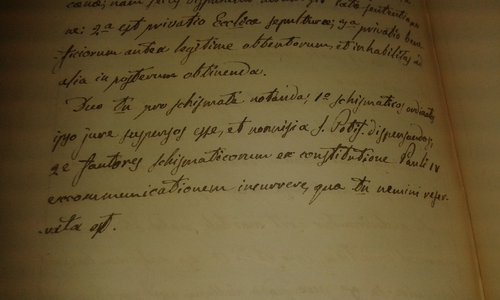 causa; nam jure
ne: 2a est privatio Ecclesae sepulturae; 3a privatio bene
ficiorum antea legitime obtentorum, et inhabilitas ad
alia in posterum obtinenda.
Duo tn pro schismate notanda; 1o schismaticos ordinatos
ipso jure suspensos esse, et nonnisi a S. Potif. dispensandos;
2o fautores schismaticorum ex constitutione Pauli IV
excommunicationem incurrere, qua tn nemini reser-
-vata est.